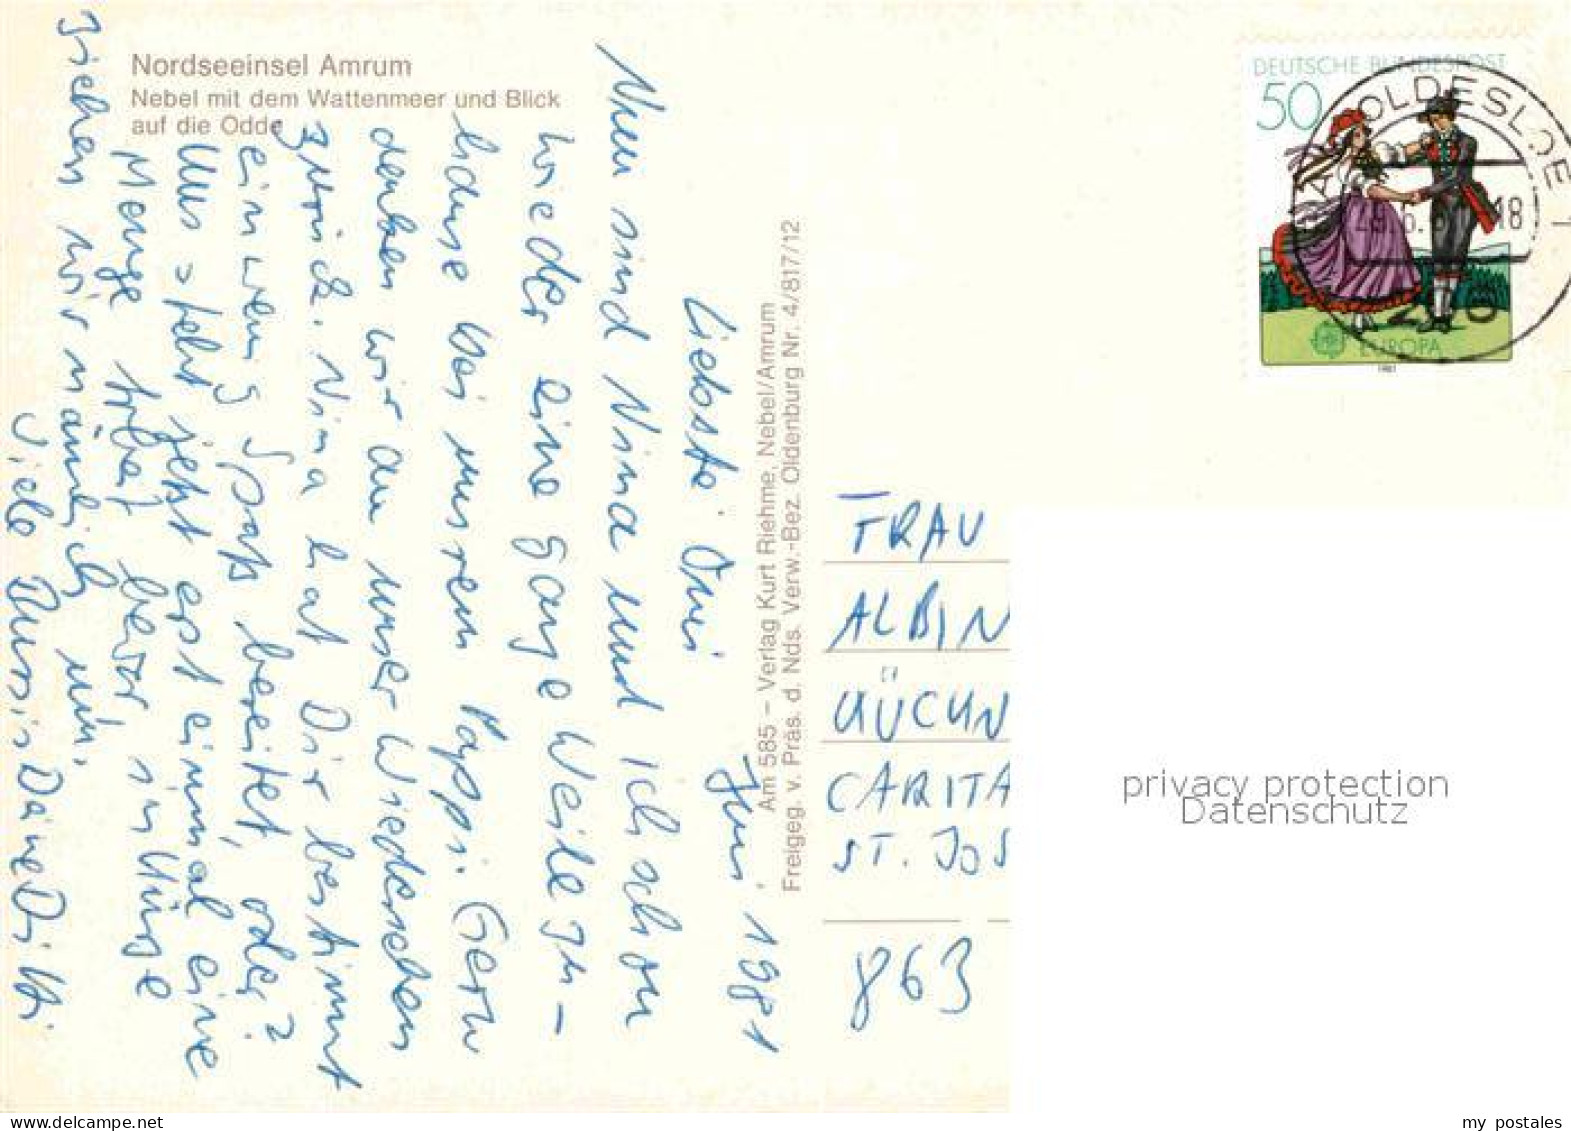 Nordseeinsel Amrum
Nebel mit dem Wattenmeer und Blick
auf die Odde
Juni 1981
Liebste Omi
Nun sind Nina und ich schon
wieder eine ganze Weile zu-
hause bei unsrem Pappi. Gern
denken wir an unser Wiedersehen
zurück. Nina hat Dir bestimmt
ein wenig Spaß bereitet, oder?
Uns steht jetzt erst einmal eine
Menge Arbeit bevor, in Kürze
ziehen wir nämlich um.
Viele Bussis Deine
Am 585 – Verlag Kurt Riehme, Nebel/Amrum
Freigeg. v. Präs. d. Nds. Verw.-Bez. Oldenburg Nr. 4/817/12
DEUTSCHE BUNDESPOST
50
EUROPA
1981
OLDESLOE 1
18
FRAU
ALBIN
CARITA
ST. JOS
863
privacy protection
Datenschutz
my_postales